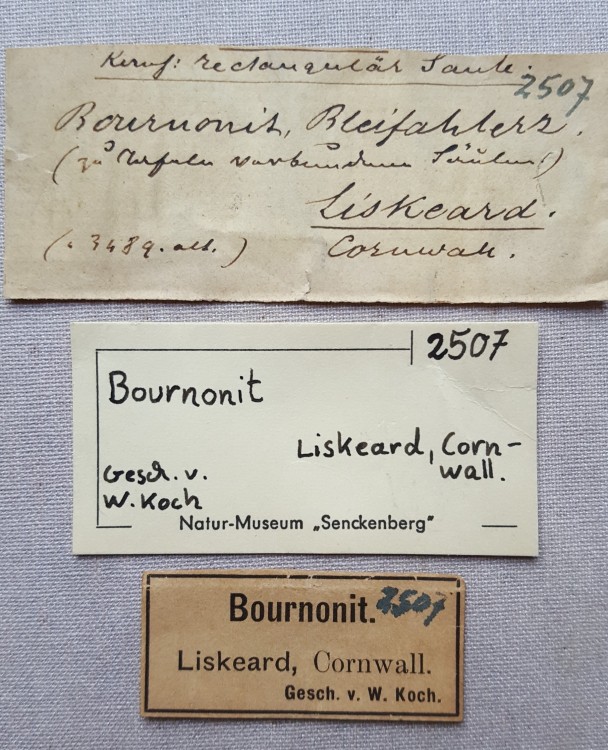 Kernf: rectangulär Säule.
2507
Bournonit, Bleifahlerz.
(zu Tafeln verbundene Säulen)
Liskeard.
(. 3489. alt. )
Cornwall.
2507
Bournonit
Liskeard, Corn-
wall.
Gesch. v.
W. Koch
Natur-Museum „Senckenberg"
Bournonit.
2507
Liskeard, Cornwall.
Gesch. v. W. Koch.